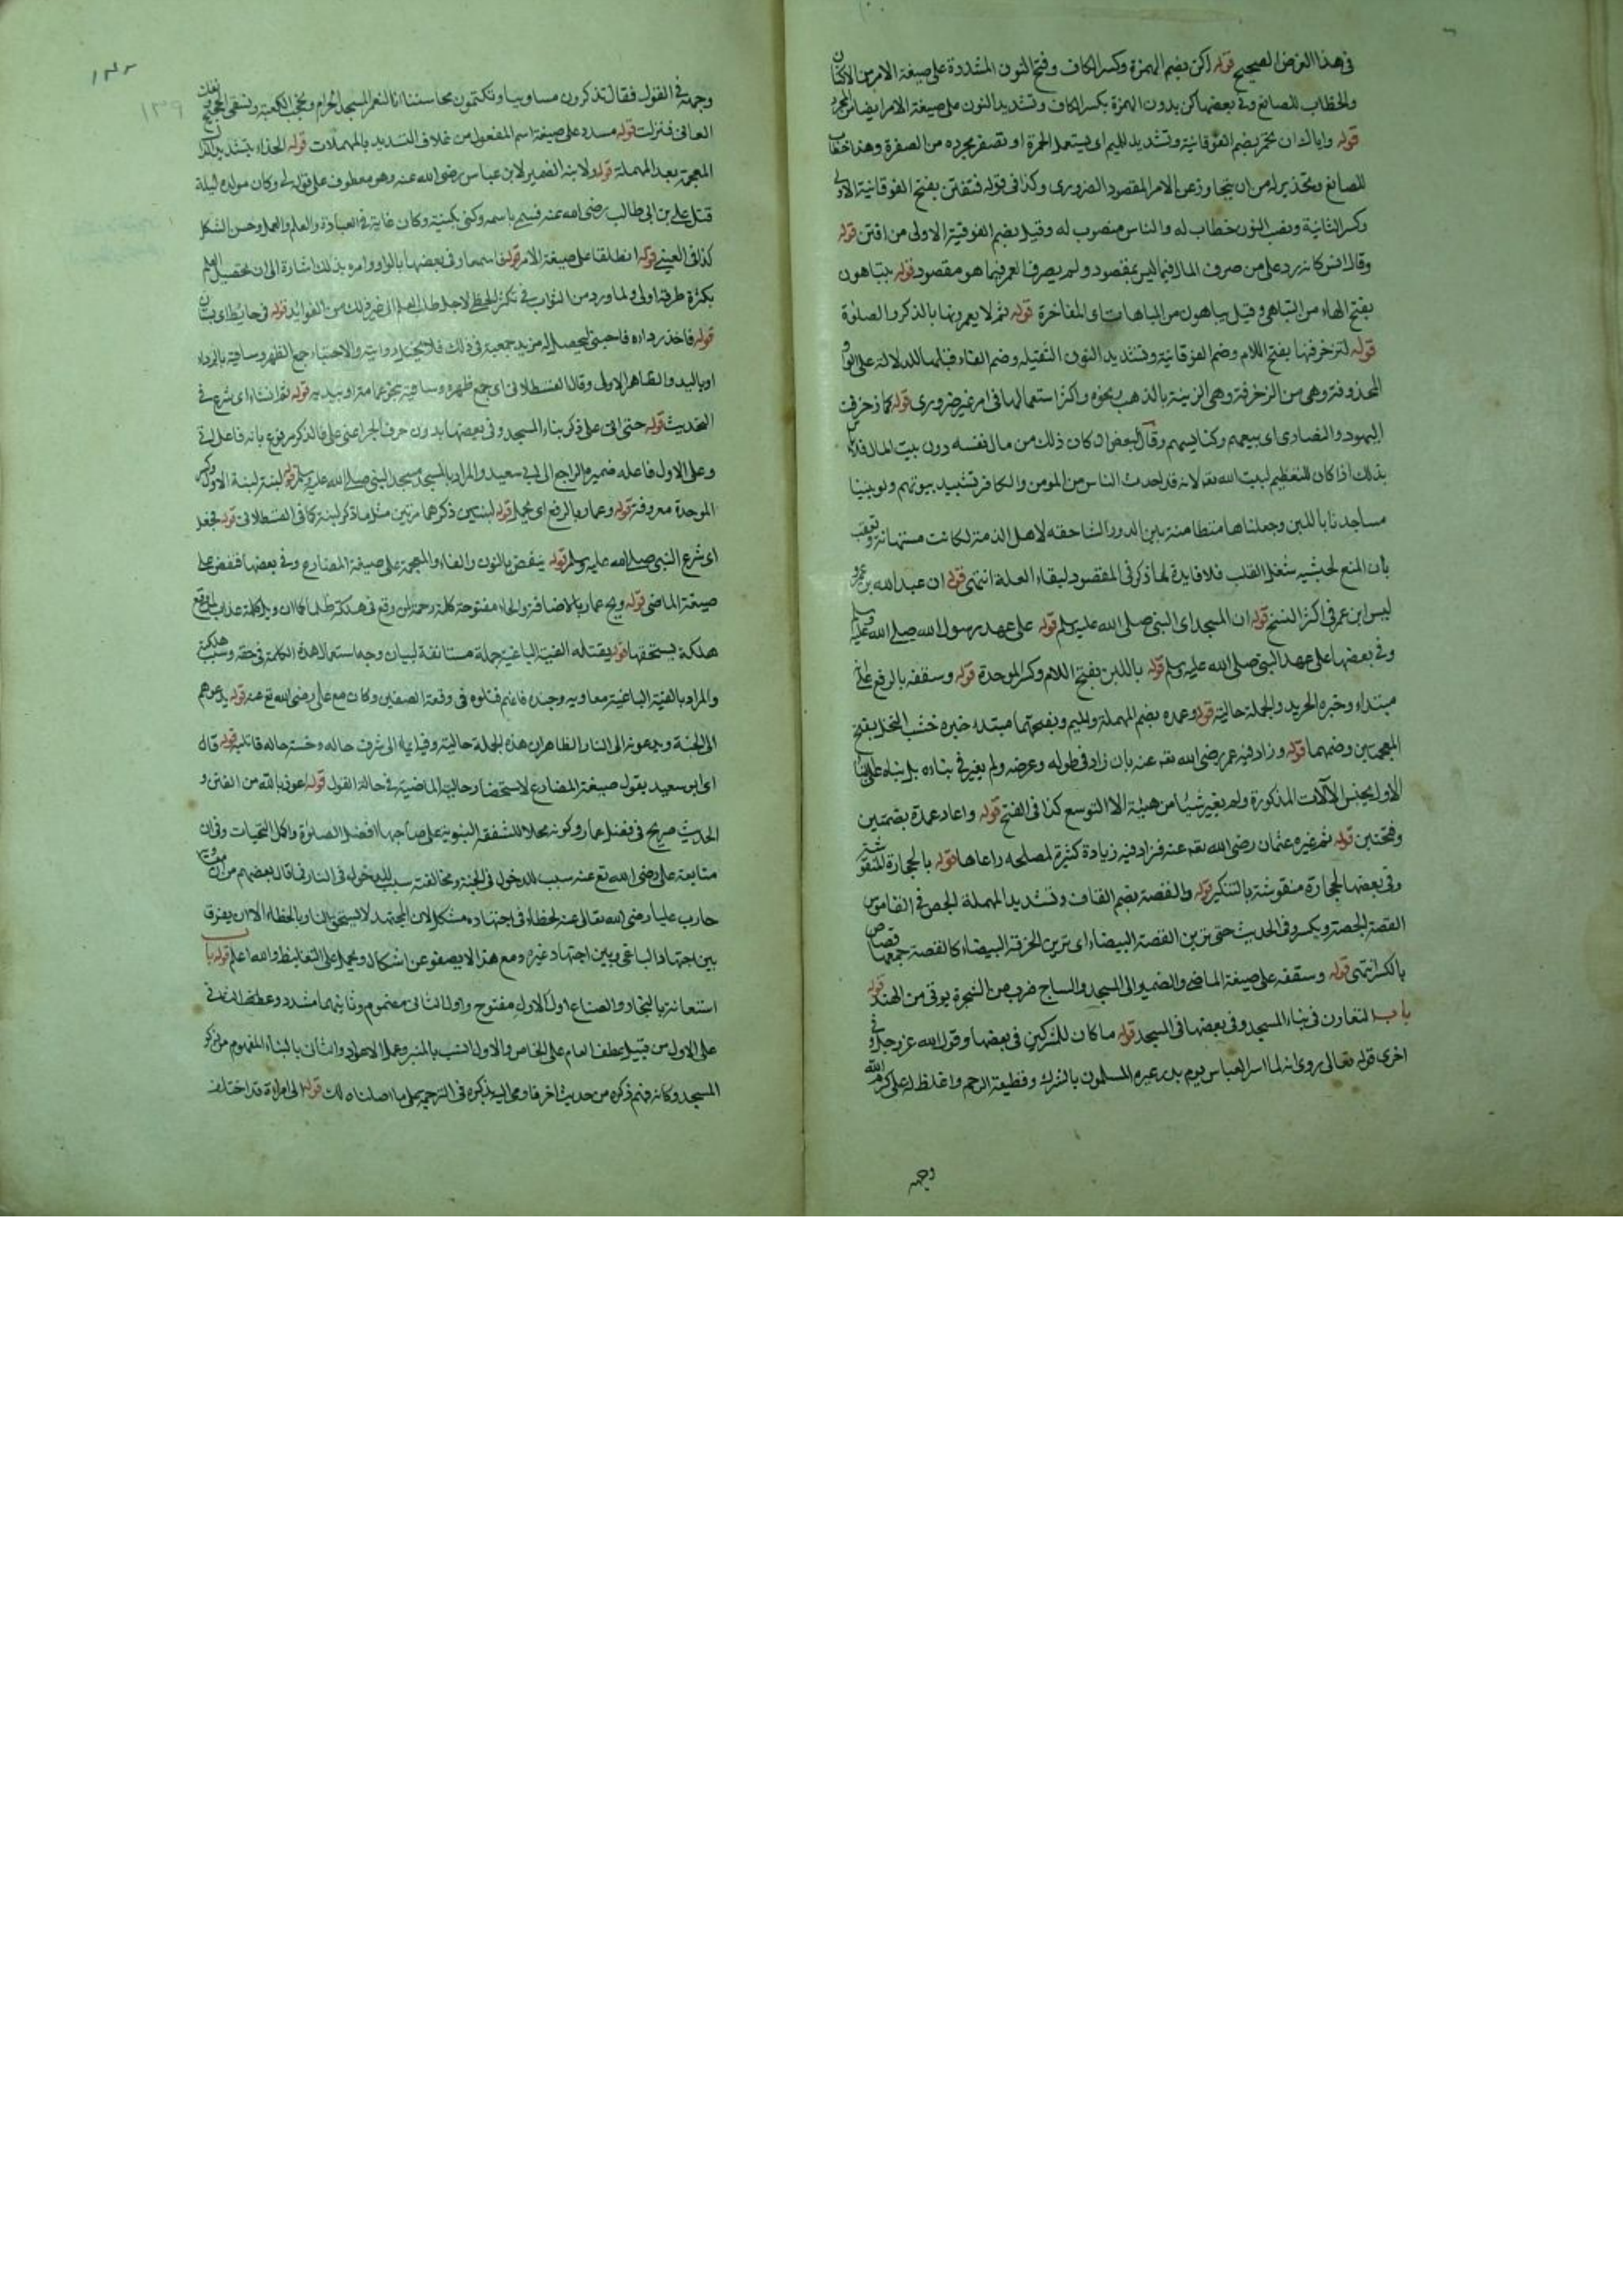 في هذا الغرض الصحيح قوله اكن بضم الهمزة وكسر الكاف وفتح النون المشددة على صيغة الامر من الاكنان
والخطاب للصانع وفي بعضها كن بدون الهمزة بكسر الكاف وتشديد النون على صيغة الامر ايضا من المجرد
قوله واياك ان تحمر بضم الفوقانية وتشديد الميم اى يستعمل الحمرة او تصفر مجرده من الصفرة وهذا خطاب
للصانع وتحذير له من ان يتجاوز عن الامر المقصود الضرورى وكذا في قوله فتفتن بفتح الفوقانية الاولى
وكسر الثانية ونصب النون خطاب له والناس منصوب له وقيل بضم الفوقية الاولى من افتن قوله
وقال انس كانه رد على من صرف المال فيما ليس بمقصود ولم يصرف العمر فيما هو مقصود قوله يتباهون
بفتح الهاء من التباهي وقيل يباهون من المباهات اى المفاخرة قوله ثم لا يعمرونها بالذكر والصلوة
قوله لتزخرفنها بفتح اللام وضم الفوقانية وتشديد النون الثقيله وضم الفاء قبلها للدلالة على الواو
المحذوفة وهى من الزخرفة وهى الزينة بالذهب ونحوه واكثر استعمالها فى امر غير ضرورى قوله كما زخرفت
اليهود والنصارى اى بيعهم وكنايسهم وقال البعض ان كان ذلك من مال نفسه دون بيت المال فلا باس
بذلك اذا كان للتعظيم لبيت الله تعه لانه قد احدث الناس من المومن والكافر تشييد بيوتهم ولو بنينا
مساجدنا باللبن وجعلناها متطامنة بين الدور الشاهقه لاهل الذمة لكانت مستهانة وتعقب
بان المنع لخشيه شغل القلب فلا فايدة لما ذكر فى المقصود لبقاء العلة انتهى قوله ان عبد الله بن عمرو
ليس ابن عمر فى اكثر النسخ قوله ان المسجد اى النبى صلى الله عليه وسلم قوله على عهد رسول الله صلى الله عليه وسلم
وفى بعضها على عهد النبى صلى الله عليه وسلم قوله باللبن بفتح اللام وكسر الموحدة قوله وسقفه بالرفع على انه
مبتداء وخبره الجريد والجملة حالية قوله وعمده بضم المهملة والميم وبفتحهما مبتدا خبره خشب النخل بفتح
المعجمتين وضمهما قوله وزاد فيه عمر رضى الله تعه عنه بان زاد فى طوله وعرضه ولم يغير فى بناءه بل بناه على بناء
الاول بجنس الآلات المذكورة ولم يغير شيئا من هيئة الا التوسع كذا فى الفتح قوله واعاد عمده بضمتين
وفتحتين قوله ثم غيره عثمان رضى الله تعه عنه فزاد فيه زيادة كثيرة لمصلحه راعاها قوله بالحجارة المنقوشة
وفى بعضها بحجارة منقوشة بالتنكير قوله والقصة بضم القاف وتشديد المهملة الجص فى القاموس
القصة الجصة ويكسر وفى الحديث حتى ترين القصة البيضاء اى ترين الخرقة البيضاء كالقصة جمعها قصاص
بالكسر انتهى قوله وسقفه على صيغة الماضى والضمير الى المسجد والساج ضرب من الشجرة يوتى من الهند قوله
باب التعاون فى بناء المسجد وفى بعضها فى المسجد قوله ما كان للمشركين فى بعضها وقول الله عز وجل وفى
اخرى قوله تعالى روى انه لما اسر العباس يوم بدر عيره المسلمون بالشرك وقطيعة الرحم واغلظ له على كرم الله
وجهه
وجهه في القول فقال تذكرون مساوينا وتكتمون محاسننا انا لنعمر المسجد الحرام ونحجب الكعبة ونسقى الحجيج ونفك
العانى فنزلت قوله مسدد على صيغة اسم المفعول من التسديد بالمهملات قوله الحذاء بتشديد الذال
المعجمة بعد المهملة قوله ولابنه الضمير لابن عباس رضى الله عنه وهو معطوف على قوله لى وكان مولده ليلة
قتل على بن ابى طالب رضى الله عنه فسمى باسمه وكنى بكنيته وكان غاية فى العبادة والعلم والعمل وحسن الشكل
كذا فى العينى قوله انطلقا على صيغة الامر قوله فاسمعا وفى بعضها بالواو وامره بذلك اشارة الى ان تحصيل العلم
بكثرة طرقه اولى ولما ورد من الثواب فى تكثر الخطى لاجل طلب العلم الى غير ذلك من الفوائد قوله فى حايط اى بستان
قوله فاخذ رداءه فاحتبى ليحصل له مزيد جمعية فى ذلك فلا يختل روايته والاحتباء جمع الظهر وساقيه بالرداء
او باليد والظاهر الاول وقال القسطلانى اى جمع ظهره وساقيه بنحو عمامته او بيديه قوله ثم انشاء اى شرع فى
التحديث قوله حتى اتى على ذكر بناء المسجد وفى بعضها بدون حرف الجر اعنى على فالذكر مرفوع بانه فاعل اتى
وعلى الاول فاعله ضميره الراجع الى ابى سعيد والمراد بالمسجد مسجد النبى صلى الله عليه وسلم قوله لبنة لبنة الاول وكسر
الموحدة معروفة قوله وعمار بالرفع اى يحمل قوله لبنتين ذكرهما مرتين مثل ما ذكر لبنة كما فى القسطلانى قوله فجعل
اى شرع النبى صلى الله عليه وسلم قوله ينفض بالنون والفاء والمعجمة على صيغة المضارع وفى بعضها فنفض على
صيغة الماضى قوله ويح عمار بالاضافة والحاء مفتوحة كلمة رحمة لمن وقع فى هلكة ظلما كما ان ويل كلمة عذاب لمن وقع
هلكة يستحقها قوله يقتله الفئة الباغية جملة مستانفة لبيان وجه استعمال هذه الكلمة فى حقه وسبب هلكته
والمراد بالفئة الباغية معاويه وجنده فانهم قتلوه فى وقعة الصفين وكان مع على رضى الله تع عنه قوله يدعوهم
الى الجنة ويدعونه الى النار الظاهر ان هذه الجملة حالية وفيه ايماء الى شرف حاله وخسة حاله قاتليه قوله قال
اى ابو سعيد يقول صيغة المضارع لاستحضار حاليه الماضية فى حالة القول قوله اعوذ بالله من الفتن و
الحديث صريح فى فضل عمار وكونه محلا للشفقة النبوية على صاحبها افضل الصلوة واكمل التحيات وفى ان
متابعة على رضى الله تع عنه سبب للدخول فى الجنة ومخالفته سبب للدخول فى النار فما قال بعضهم من ان
حارب عليا رضى الله تعالى عنه لخطاء فى اجتهاده مشكل لان المجتهد لا يستحق بالنار بالخطاء الا ان يفرق
بين اجتهاد الباغى وبين اجتهاد غيره ومع هذا لا يصفو عن اشكال ويحمل على التغليظ والله اعلم قوله باب
استعانة بالنجار والصناع اول الاول مفتوح واول الثانى مضموم وثانيهما مشدد وعطف الثانى
على الاول من قبيل عطف العام على الخاص والاول انسب بالمنبر وعمل الاعواد والثانى بالبناء المفهوم من ذكر
المسجد وكانه فهم ذكره من حديث اخر فاومى اليه بذكره فى الترجمة على ما اصلناه لك قوله الى امراة قد اختلف
١٣٩